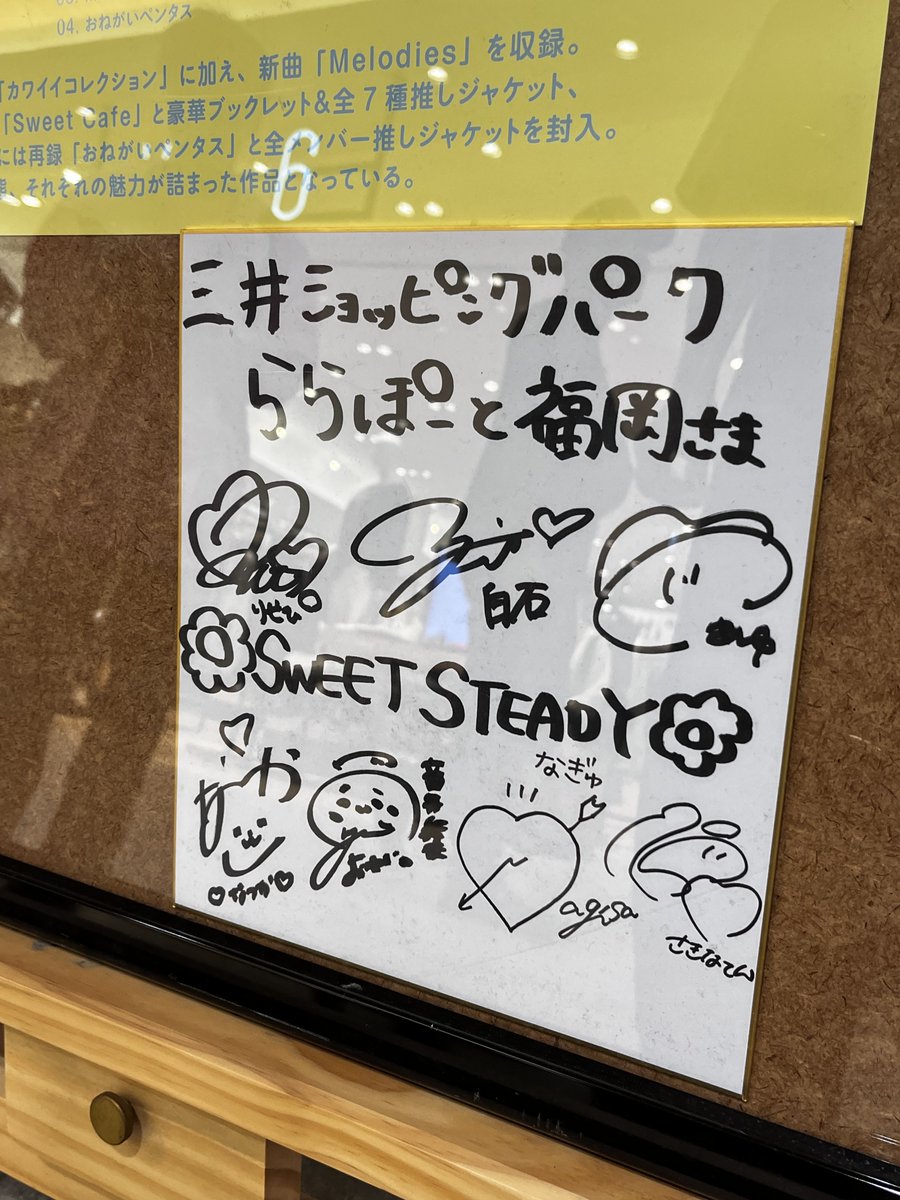 04. おねがいペンタス
「カワイイコレクション」に加え、新曲「Melodies」を収録。
「Sweet Cafe」と豪華ブックレット&全7種推しジャケット、
には再録「おねがいペンタス」と全メンバー推しジャケットを封入。
それぞれの魅力が詰まった作品となっている。
6
三井ショッピングパーク
ららぽーと福岡さま
りせひ。
白石
SWEET STEADY
なつか
なぎゅ
agisa
さきなてん